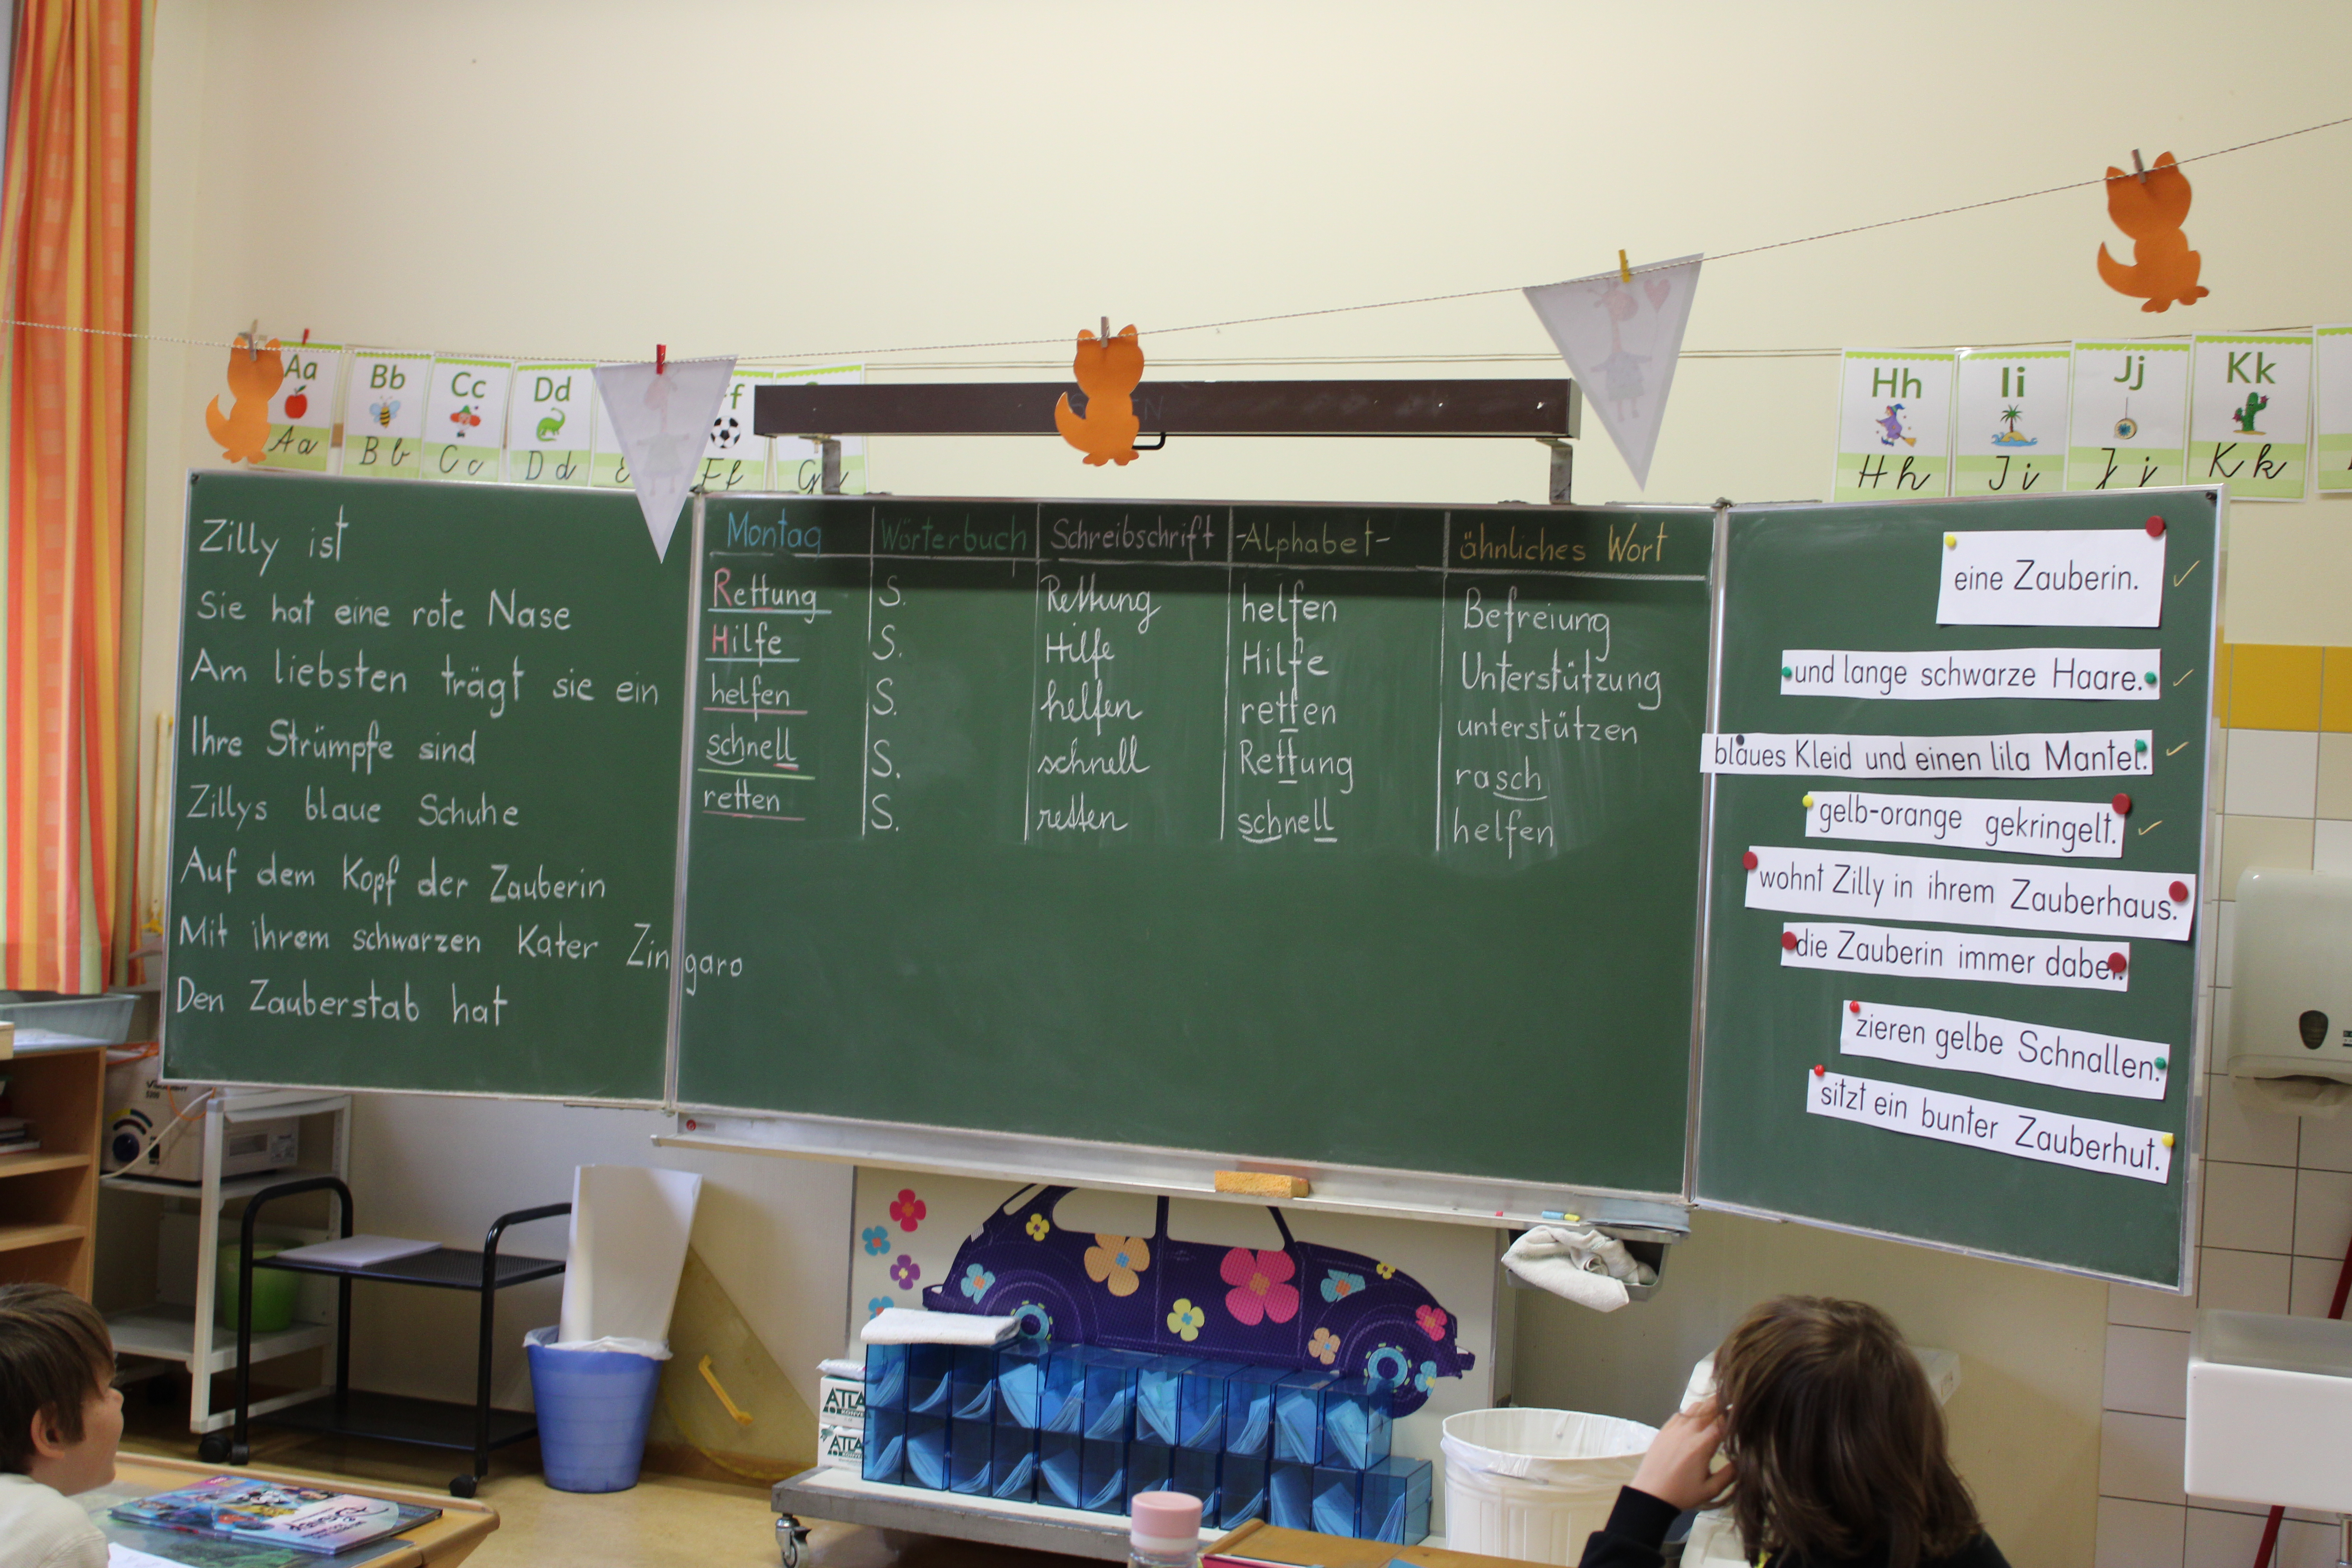 Aa
Aa
Bb
Bb
Cc
Cc
Dd
Dd
Ff
Hh
Hh
Ii
Ii
Jj
Jj
Kk
Kk
Zilly ist
Sie hat eine rote Nase
Am liebsten trägt sie ein
Ihre Strümpfe sind
Zillys blaue Schuhe
Auf dem Kopf der Zauberin
Mit ihrem schwarzen Kater Zingaro
Den Zauberstab hat
Montag Wörterbuch Schreibschrift -Alphabet- ähnliches Wort
Rettung S. Rettung helfen Befreiung
Hilfe S. Hilfe Hilfe Unterstützung
helfen S. helfen retten unterstützen
schnell S. schnell Rettung rasch
retten S. retten schnell helfen
eine Zauberin.
und lange schwarze Haare.
blaues Kleid und einen lila Mantel.
gelb-orange gekringelt.
wohnt Zilly in ihrem Zauberhaus.
die Zauberin immer dabei.
zieren gelbe Schnallen.
sitzt ein bunter Zauberhut.